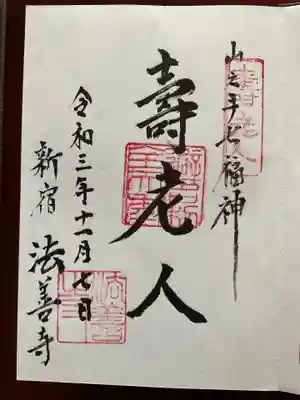 山之手七福神
壽老人
令和三年十一月七日
新宿 法善寺